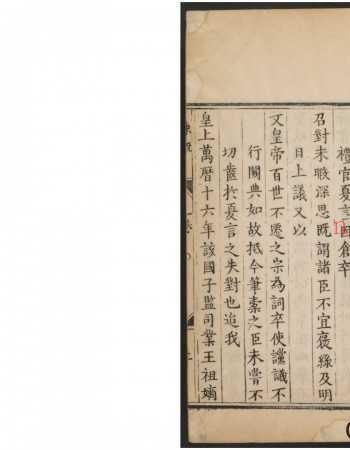 禮官夏言因倉卒
召對未暇深思既謂諸臣不宜褒絲及明
日上議又以
文皇帝百世不遷之宗為詞卒使讜議不
行闕典如故抵今筆橐之臣未嘗不
切齒於夏言之失對也迨我
皇上萬曆十六年該國子監司業王祖嫡